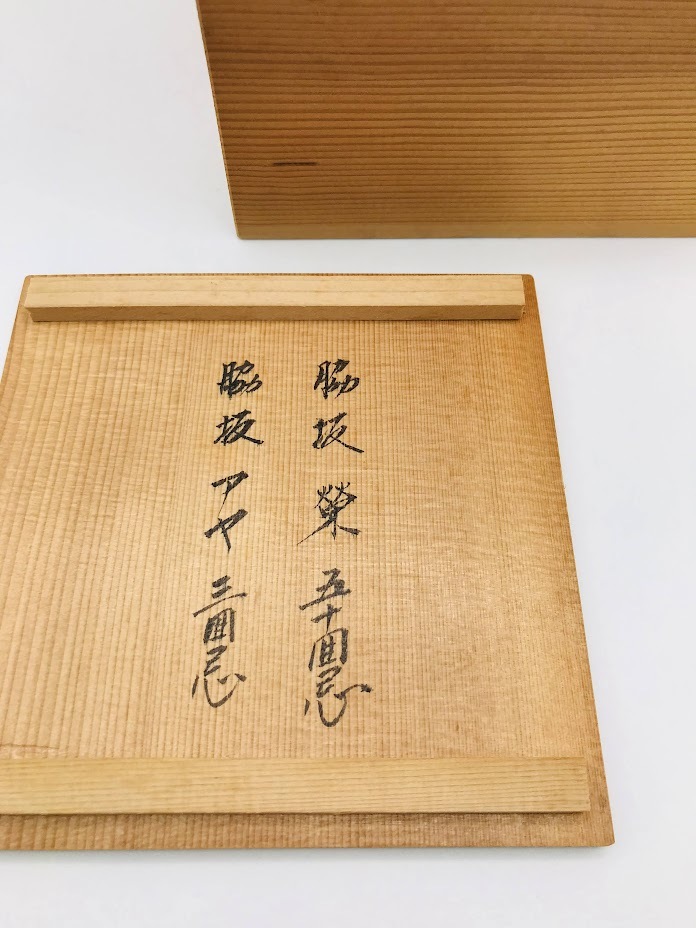 脇坂 榮 五十回忌
脇坂 アヤ 三回忌